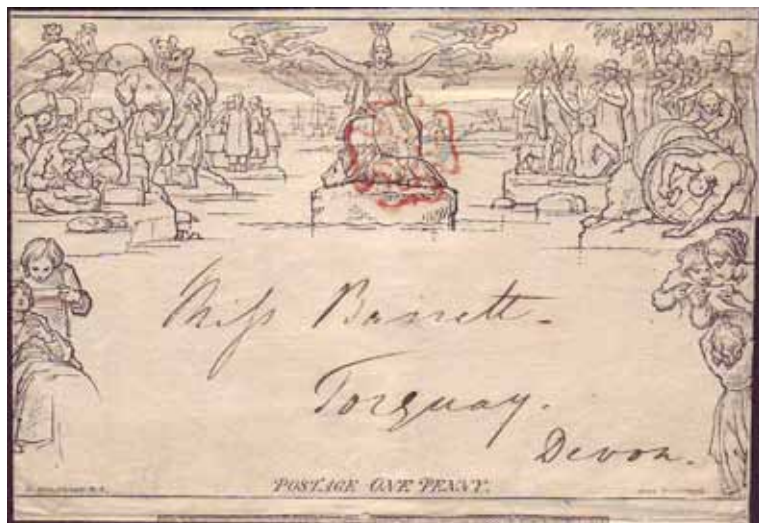 Miss Barrett.
Torquay.
Devon.
POSTAGE ONE PENNY.